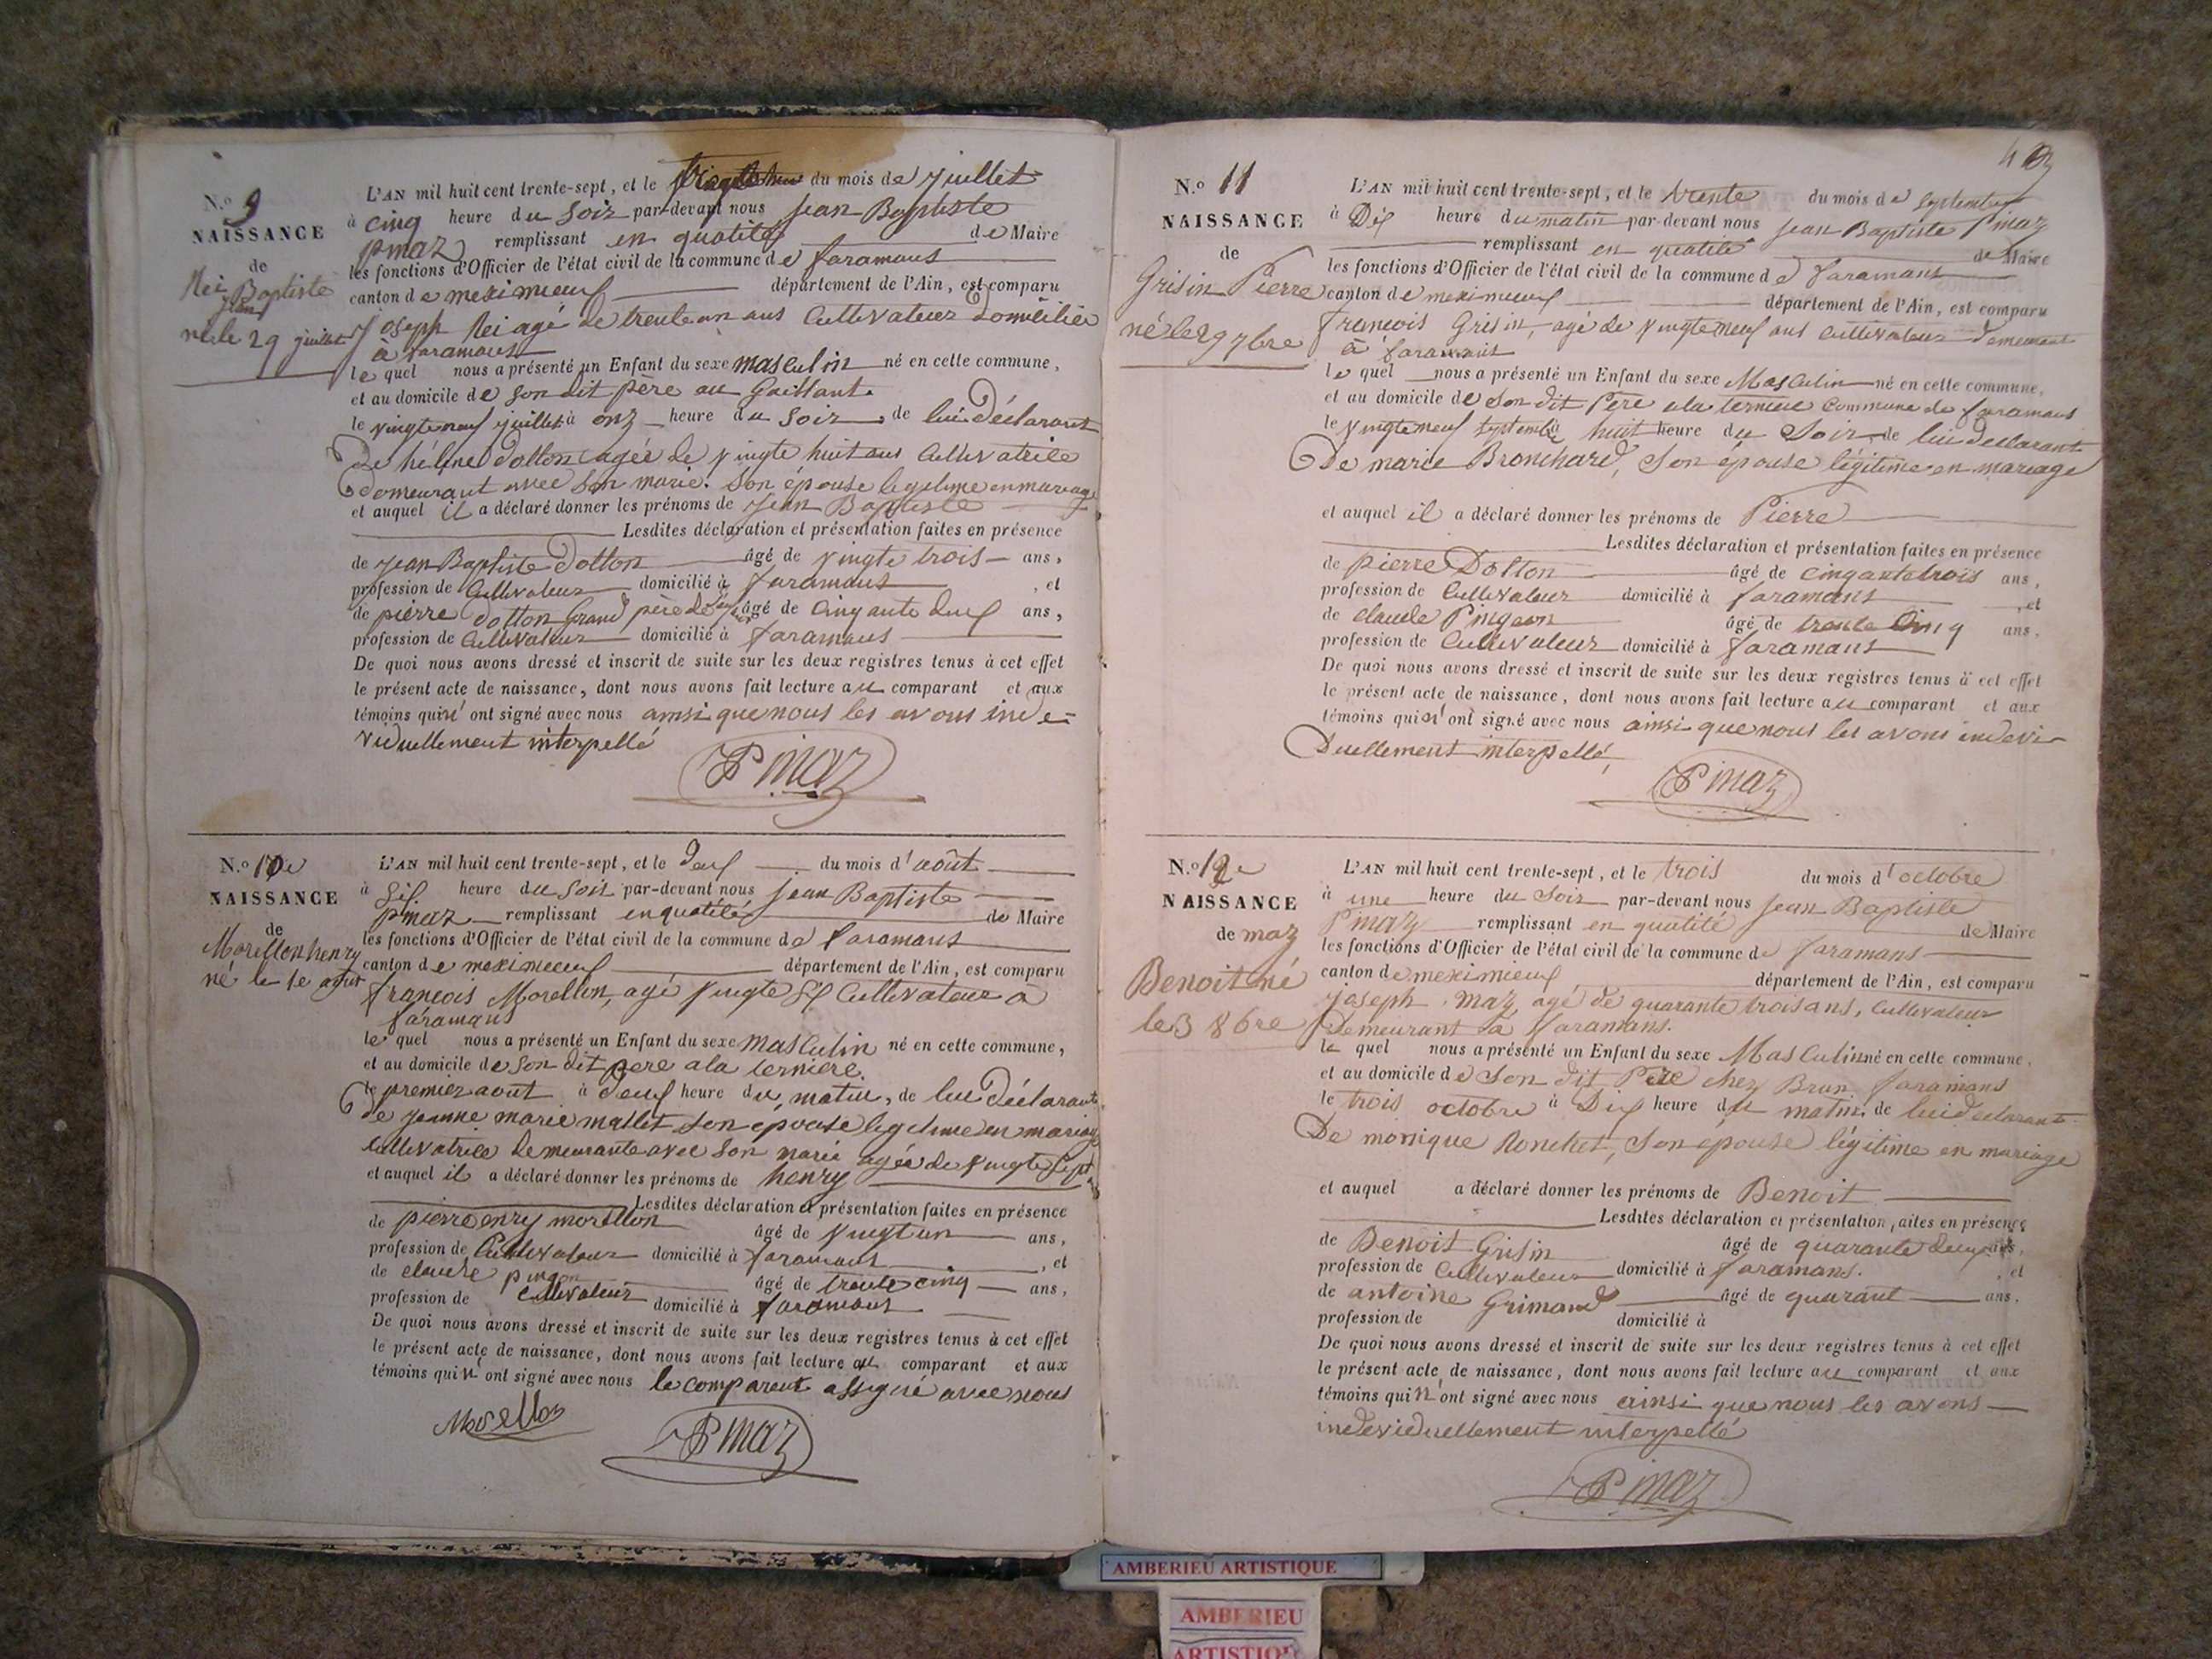 N.º 9
NAISSANCE
de
Rei Baptiste
Jean
né le 29 juillet
L'AN mil huit cent trente-sept, et le du mois de juillet
à cinq heure du soir par-devant nous Jean Baptiste
Pmaz remplissant en quatité de Maire
les fonctions d'Officier de l'état civil de la commune de faramans
canton de meximieux département de l'Ain, est comparu
Joseph Rei agé de trente un ans Cultivateur domicilié
à faramans
le quel nous a présenté un Enfant du sexe masculin né en cette commune,
et au domicile de son dit père au Gaillant.
le vingte neuf juillet à onz heure du soir, de lui déclarant
De hélène dotton agée de vingte huit ans Cultivatrice
demeurant avec son marie. Son épouse legitime en mariage
et auquel il a déclaré donner les prénoms de Jean Baptiste
Lesdites déclaration et présentation faites en présence
de Jean Baptiste Dotton âgé de vingte trois ans,
profession de Cultivateur domicilié à faramans , et
de pierre dotton Grand père de âgé de cinqante deux ans,
profession de Cultivateur domicilié à faramans
De quoi nous avons dressé et inscrit de suite sur les deux registres tenus à cet effet
le présent acte de naissance, dont nous avons fait lecture au comparant et aux
témoins qui n' ont signé avec nous ainsi que nous les avons inde-
viduellement interpellé
Pmaz
N.º 10e
NAISSANCE
de
Morellon henry
né le 1e aout
L'AN mil huit cent trente-sept, et le deux du mois d'août
à six heure du soir par-devant nous jean Baptiste
pmaz remplissant en quatité de Maire
les fonctions d'Officier de l'état civil de la commune de faramans
canton de meximieux département de l'Ain, est comparu
françois Morellon, agé vingte six Cultivateur à
faramans
le quel nous a présenté un Enfant du sexe masculin né en cette commune,
et au domicile de son dit pere a la terniere.
le premier aout à deux heure du matin, de lui déclarant
de jeanne marie mallet son epouse legitime en mariage
cultivatrice demeurante avec son marie agée de vingte sept ans
et auquel il a déclaré donner les prénoms de henry
Lesdites déclaration et présentation faites en présence
de pierre enry morellon âgé de vingt un ans,
profession de Cultivateur domicilié à faramans , et
de claude pingon âgé de trente cinq ans,
profession de cultivateur domicilié à faramans
De quoi nous avons dressé et inscrit de suite sur les deux registres tenus à cet effet
le présent acte de naissance, dont nous avons fait lecture au comparant et aux
témoins qui n' ont signé avec nous le comparent assigné avec nous
Morellon
Pmaz
N.º 11
NAISSANCE
de
Grisin Pierre
né le 29 7bre
L'AN mil huit cent trente-sept, et le trente du mois de septembre
à Dix heure du matin par-devant nous jean Baptiste Pmaz
remplissant en quatité de Maire
les fonctions d'Officier de l'état civil de la commune de faramans
canton de meximieux département de l'Ain, est comparu
françois Grisin, agé de vingte neuf ans cultivateur demeurant
à faramans
le quel nous a présenté un Enfant du sexe Masculin né en cette commune,
et au domicile de son dit Pere a la terniere commune de faramans
le vingte neuf septembre à huit heure du soir, de lui declarant
De marie Bronchard, son épouse légitime en mariage
et auquel il a déclaré donner les prénoms de Pierre
Lesdites déclaration et présentation faites en présence
de pierre Dotton âgé de cinqante trois ans,
profession de Cultivateur domicilié à faramans , et
de claude Pingeon âgé de trente Cinq ans,
profession de Cultivateur domicilié à faramans
De quoi nous avons dressé et inscrit de suite sur les deux registres tenus à cet effet
le présent acte de naissance, dont nous avons fait lecture au comparant et aux
témoins qui n' ont signé avec nous ainsi que nous les avons indevi-
Duellement interpellé,
Pmaz
N.º 12e
NAISSANCE
de maz
Benoit né
le 3 8bre
L'AN mil huit cent trente-sept, et le trois du mois d'octobre
à une heure du soir par-devant nous jean Baptiste
Pmaz remplissant en quatité de Maire
les fonctions d'Officier de l'état civil de la commune de faramans
canton de meximieux département de l'Ain, est comparu
joseph maz, agé de quarante trois ans, cultivateur
Demeurant à faramans.
le quel nous a présenté un Enfant du sexe Masculin né en cette commune,
et au domicile de son dit Pere chez Brun faramans
le trois octobre à Dix heure du matin, de lui declarant
De monique Ronchet, son épouse légitime en mariage
et auquel a déclaré donner les prénoms de Benoit
Lesdites déclaration et présentation faites en présence
de Benoit Grisin âgé de quarante deux ans,
profession de Cultivateur domicilié à faramans. , et
de antoine Grimand âgé de quarant ans,
profession de domicilié à
De quoi nous avons dressé et inscrit de suite sur les deux registres tenus à cet effet
le présent acte de naissance, dont nous avons fait lecture au comparant et aux
témoins qui n' ont signé avec nous ainsi que nous les avons
indeviduellement interpellé
Pmaz
AMBERIEU ARTISTIQUE
AMBERIEU
ARTISTIQUE